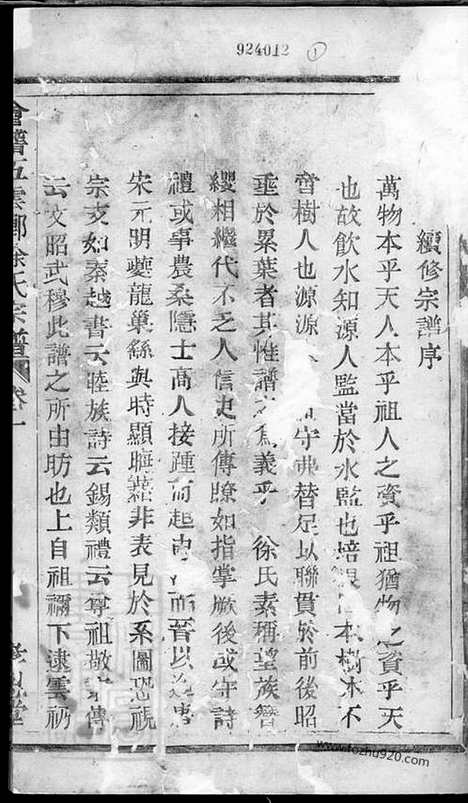 924012 ①
續修宗譜序
萬物本乎天人本乎祖人之資乎祖猶物之資乎天
也故飲水知源人監當於水監也培根本樹木不
啻樹人也源源守弗替足以聯貫於前後昭
垂於累葉者其惟譜之爲義乎 徐氏素稱望族簪
纓相繼代不乏人信史所傳瞭如指掌厥後或守詩
禮或事農桑隱士高人接踵而起由而晉以迄唐
宋元明夔龍巢繇與時顯晦蓋非表見於系圖恐視
宗支如秦越書云睦族詩云錫類禮云尊祖敬宗傳
云文昭武穆此譜之所由昉也上自祖禰下逮雲礽
會稽五雲鄉徐氏宗譜 卷一
堂
www.fozhu920.com